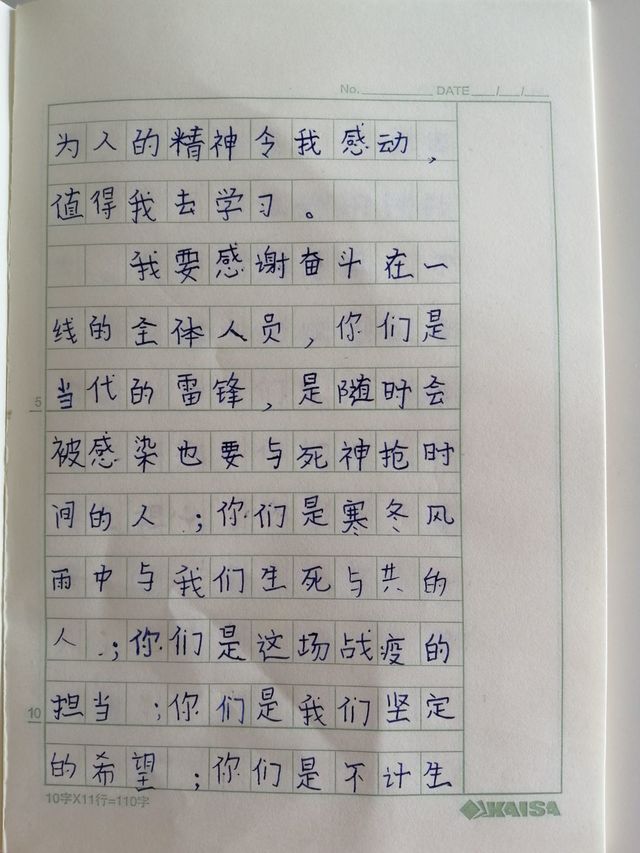 No. DATE / /
为人的精神令我感动，
值得我去学习。
我要感谢奋斗在一
线的全体人员，你们是
当代的雷锋，是随时会
5
被感染也要与死神抢时
间的人；你们是寒冬风
雨中与我们生死与共的
人；你们是这场战疫的
担当；你们是我们坚定
10
的希望；你们是不计生
10字X11行=110字
KAISA